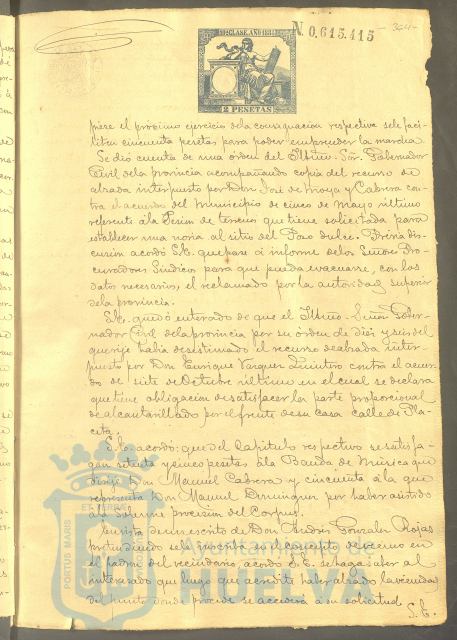 10ª CLASE. AÑO 1884
N. 0,615,415
364-
2 PESETAS
piese el próximo ejercicio dela consignacion respectiva sele faci-
liten cincuenta pesetas para poder emprender la marcha.
Se dió cuenta de una órden del Iltmo. Sor. Gobernador
Civil dela provincia acompañando copia del recurso de
alzada interpuesto por Don José de Moya y Cabrera con-
tra el acuerdo del Municipio de cinco de Mayo último
referente ála cesion de terreno que tiene solicitada para
establecer una noria al sitio del Pao dulce. Prévia dis-
cusion acordó S.E. que pase á informe delos Señores Pro-
curadores Síndicos para que pueda evacuarse, con los
datos necesarios, el reclamado por la autoridad superior
dela provincia.
S.E. quedó enterado de que el Iltmo. Señor Gober-
nador Civil dela provincia por su órden de diez y seis del
que rije habia desestimado el recurso dealzada inter-
puesto por Don Enrique Vazquez Quintero contra el acuer-
do de siete de Octubre último en el cual se declara
que tiene obligacion desatisfacer la parte proporcional
de alcantarillado por el frente desu casa calle de Pla-
ceta.
S.E. acordó: que del Capítulo respectivo se satisfa-
gan setenta y cinco pesetas á la Banda de Música que
dirije Don Manuel Cabrera y cincuenta á la que
representa Don Manuel Dominguez por haber asistido
ála Solemne procesion del Corpus.
escrito de Don Andrés Gonzalez Rojas
pretendiendo se le inscriba en el concepto de vecino en
el padron del vecindario, acordó S.E. se haga saber al
interesado que luego que acredite haber alzado la vecindad
del punto donde procede se accederá á su solicitud
S.E.
ET TERRAE
PORTUS MARIS
Ayuntamiento de
HUELVA